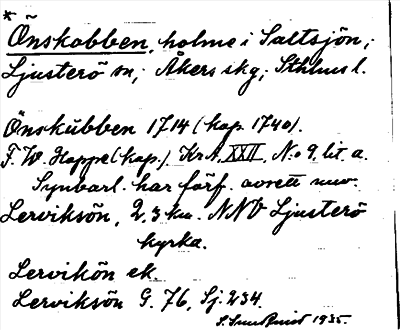 *
Önskobben, holme i Saltsjön,
Ljusterö sn; Åkers skg; Sthlms l.
Önskubben 1714 (kop. 1740).
F. W. Hoppe (kop.) Kr A. XXII, N:o 9, lit. a.
Synbarl. har förf. avsett nuv.
Lerviksön, 2,3 km. NNV Ljusterö
kyrka.
Lervikön ek.
Lerviksön G. 76, Sj. 234.
1935.